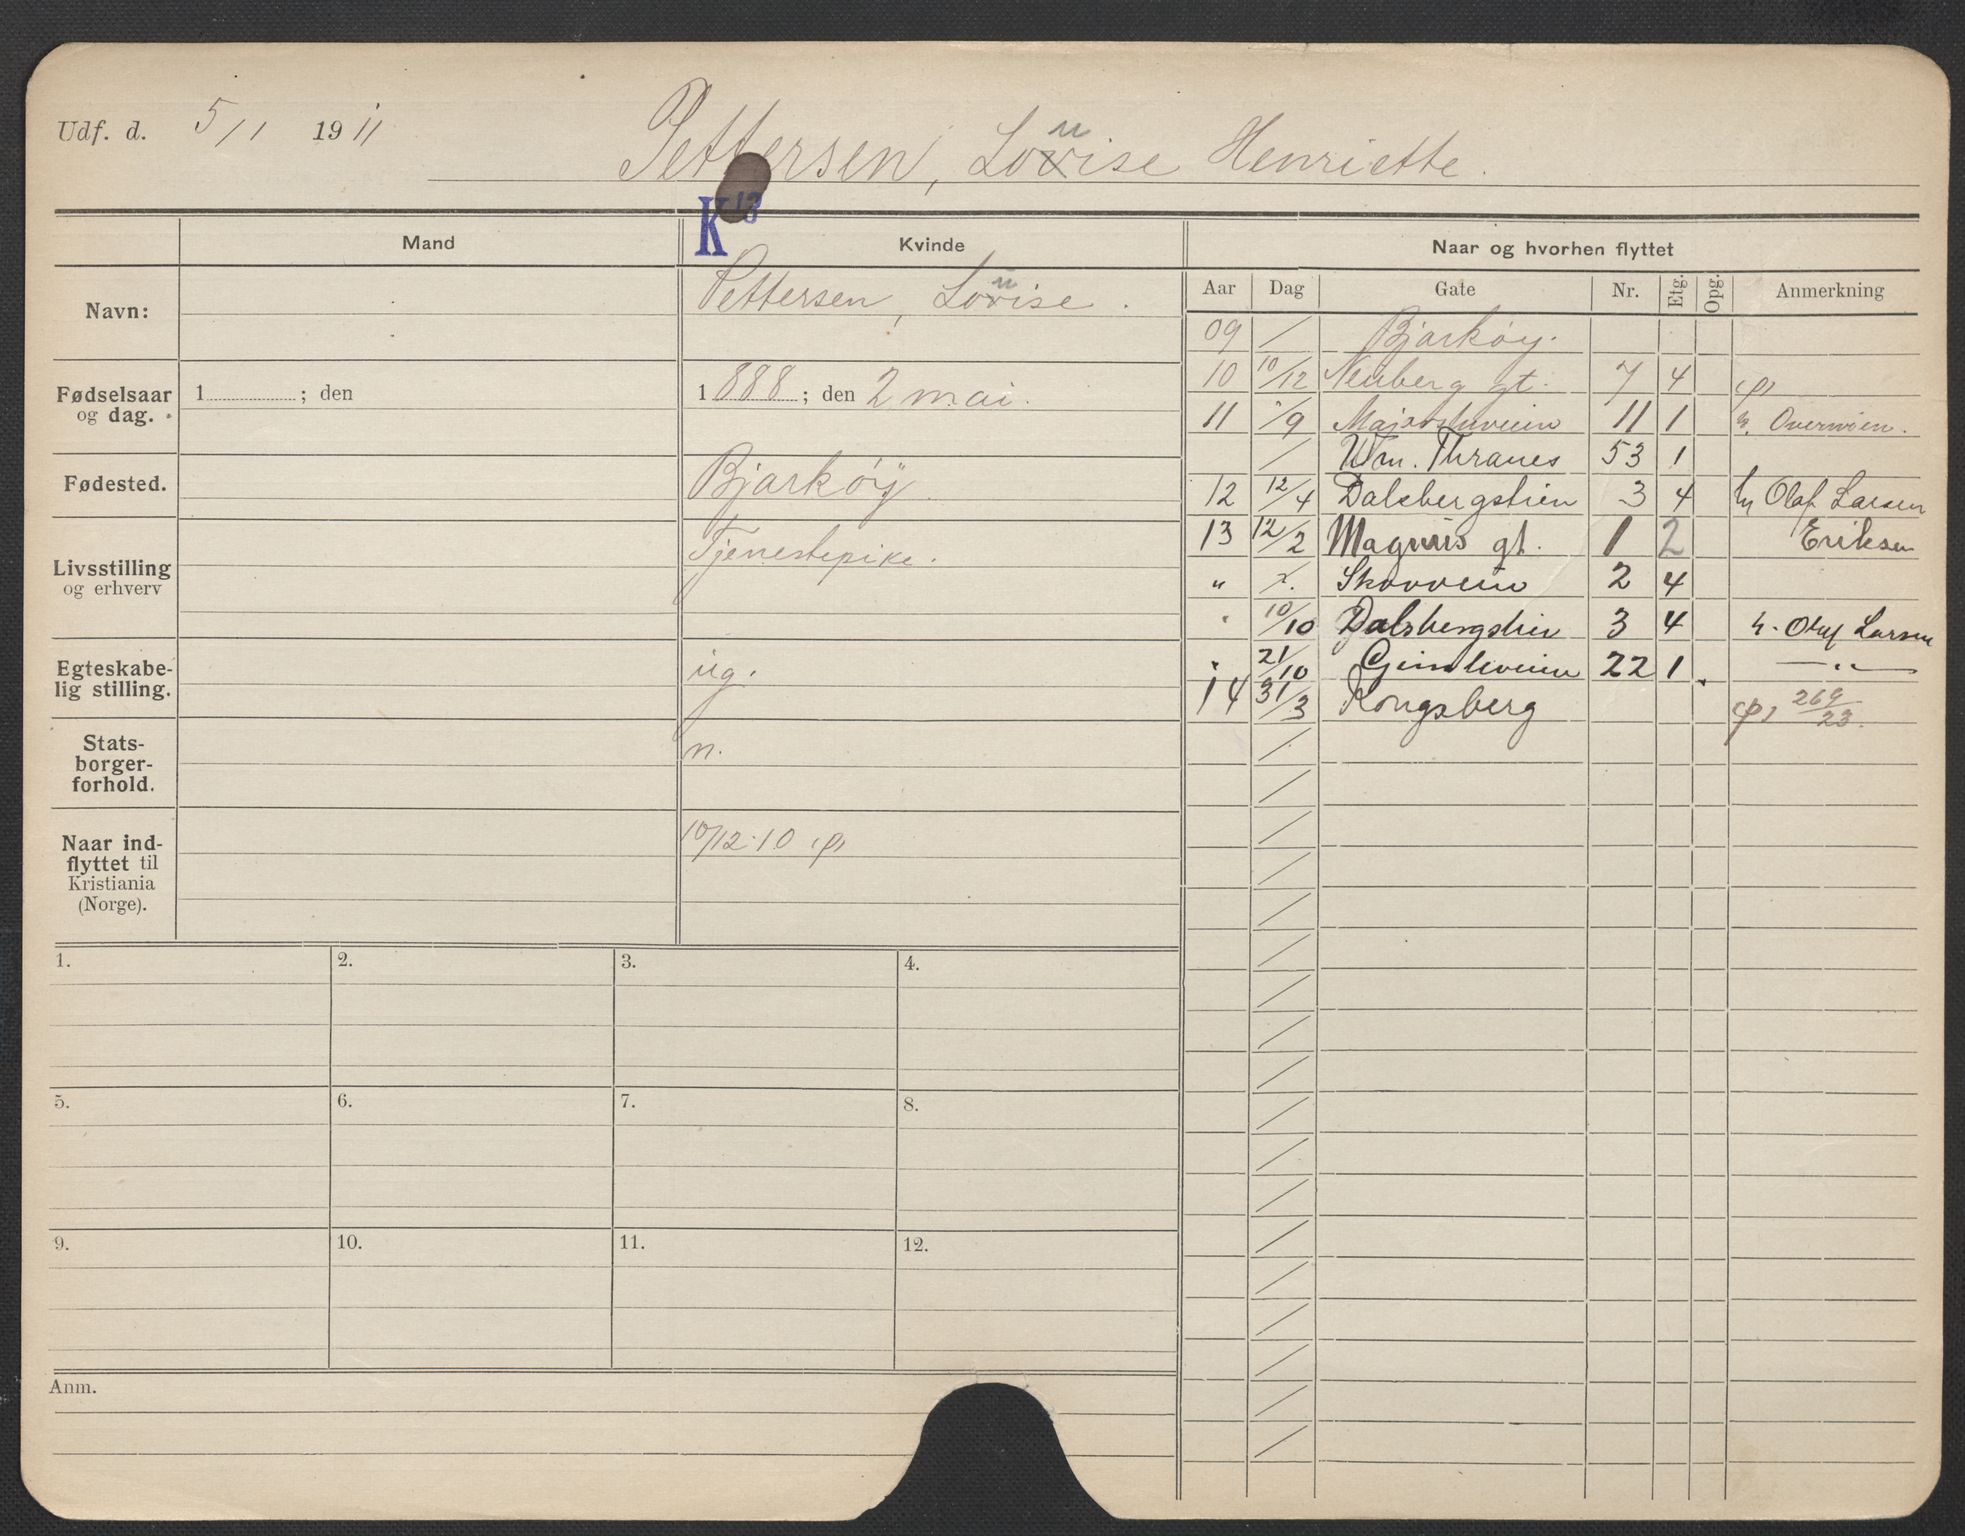 Udf. d. 5/1 1911
Pettersen, Lovise Henriette.
u
K 13
Mand
Kvinde
Naar og hvorhen flyttet
Navn:
Pettersen, Lovise.
u
Fødselsaar
og dag.
1 ; den
1888; den 2 mai.
Fødested.
Bjarkøy
Livsstilling
og erhverv
Tjenestepike.
Egteskabe-
lig stilling.
ug.
Stats-
borger-
forhold.
n.
Naar ind-
flyttet til
Kristiania
(Norge).
10/12·10 (p)
1. 2. 3. 4.
5. 6. 7. 8.
9. 10. 11. 12.
Anm.
Aar Dag Gate Nr. Etg. Opg. Anmerkning
09 / Bjarkøy.
10 10/12 Neuberg gt. 7 4 (p)
11 /9 Majorstuveien 11 1 h.
/ Wm. Thranes 53 1
12 12/4 Dalsbergstien 3 4 h Olaf Larsen
13 12/2 Magnus gt. 1 2 Eriksen
" / Skovveien 2 4
" 10/10 Dalsbergstien 3 4 h. Olaf Larsen
" 21/10 Gimleveien 22 1 — " —
14 31/3 Kongsberg (p) 269/23.